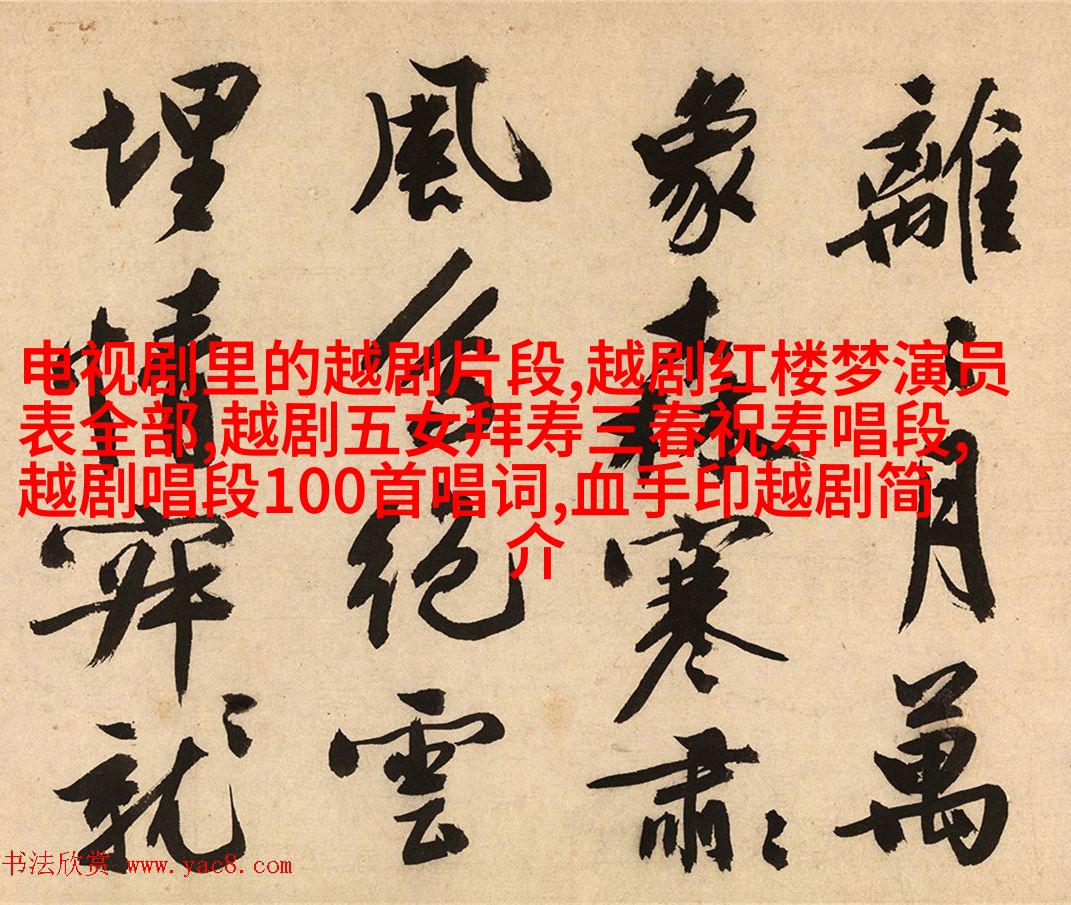 離
月
萬
象
森
寒
肅〻
風
絕
雲
埋
情
就〻
电视剧里的越剧片段,越剧红楼梦演员
表全部,越剧五女拜寿三春祝寿唱段,
越剧唱段100首唱词,血手印越剧简
介
书法欣赏 www.yac8.com